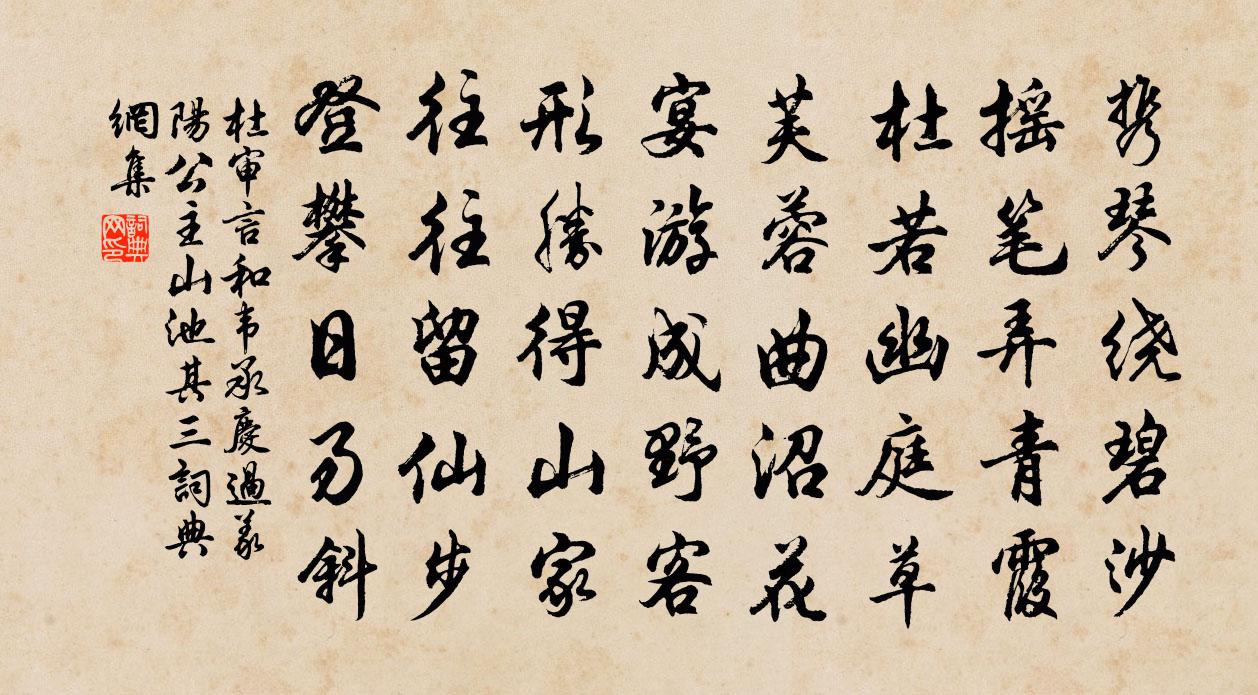 携琴绕碧沙
摇笔弄青霞
杜若幽庭草
芙蓉曲沼花
宴游成野客
形胜得山家
往往留仙步
登攀日易斜
杜审言和韦承慶過義
陽公主山池其三詞典
網集
詞典网印